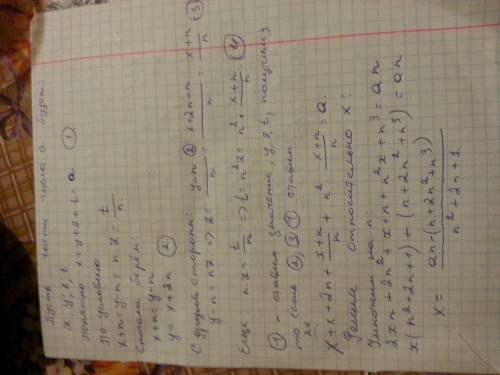 Пусть части числа а будут:
x; y, z, t
понятно x+y+z+t=a ①
По условию
x+n = y-n = nz = t/n
Сначала берём:
x+n = y-n
y = x+2n ②
С другой стороны: y-n ② x+2n-n x+n ③
y-n = nz => z = ――― = ――― = ―――
n n n
Ещё: nz = t/n => t = n²z = n² · (x+n)/n ④
① - ставим значение, y, z, t, получим
то если ②, ③ ① ставим:
x+x+2n+ (x+n)/n + n² (x+n)/n = a.
Решаем относительно x:
Умножим на n:
2xn + 2n² + x + n + n²x + n³ = an
x(n²+2n+1) + (n+2n²+n³) = an
x = (an-(n+2n²+n³))/(n²+2n+1)